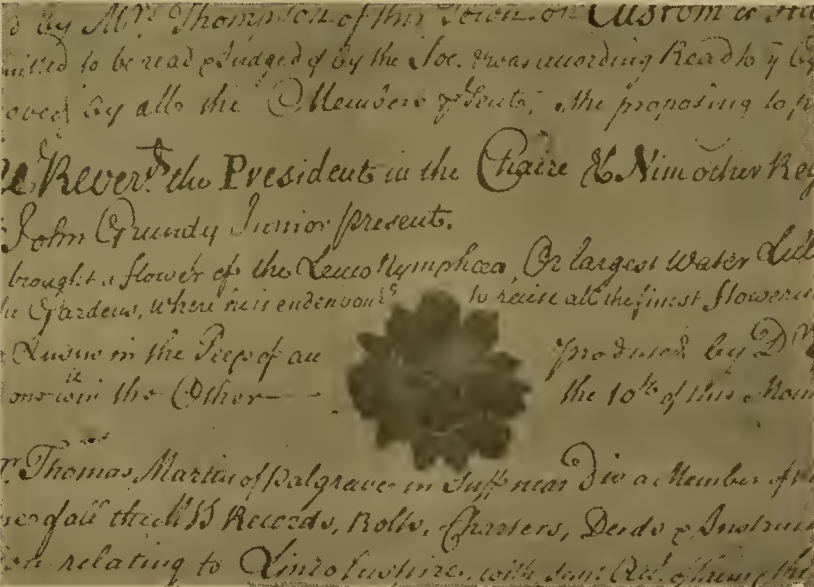 d by Mrs. Thompson of this Town on Custom
mitted to be read & Judged of by the Soc. & was according Read to
by all the Members the proposing to
Reverd. the President in the Chaire & Nine other Reg
John Grundy Junior present.
brought a flower of the Leuco Nymphæa, Or largest Water
Gardens, where he is endeavours to raise all the finest flowering
Lusus in the Peep of an produced by Dr
one win the Other — the 10th of this Mon
Thomas Martin of Palgrave in Suff near Dis a Member of
of all the MSS Records, Rolls, Charters, Deeds & Instrum
relating to Lincolnshire, with